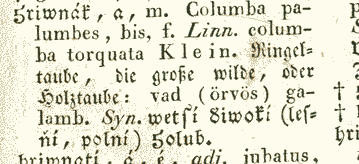 Hřiwnáč, a, m. Columba pa-
lumbes, bis, f. Linn. colum-
ba torquata Klein. Ringel-
taube, die große wilde, oder
Holztaube: vad (örvös) ga-
lamb. Syn. wetſſí diwokí (leſ-
ňí, polní) Holub.
hriwnatí, á, é, adj. jubatus,